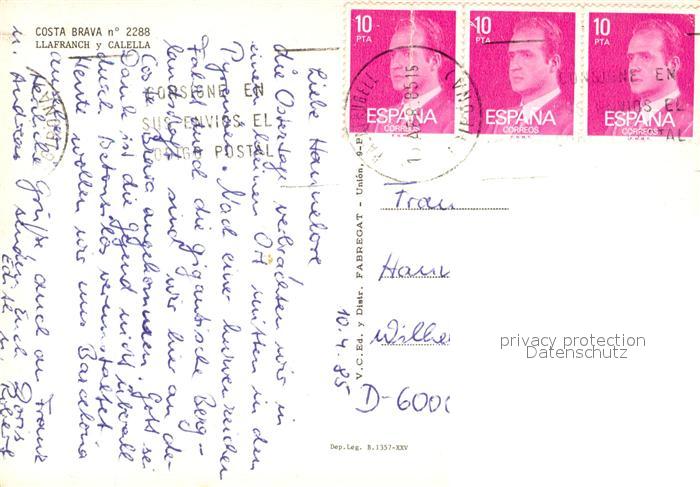 COSTA BRAVA nº 2288
LLAFRANCH y CALELLA
Liebe Hannelore
die Ostertage verbrachten wir in
einem kleinen Ort mitten in den
Pyrenäen. Nach einer kurvenreichen
Fahrt durch die gigantische Berg-
landschaft sind wir hier an der
Costa Brava angekommen. Gott sei
Dank ist die Gegend nicht überall
durch Betonsilos verunstaltet.
Heute wollen wir uns Barcelona
Herzliche Grüße auch an Franz
u. Andreas senden Euch Doris
Edith u. Robert
10.4.85
V.C. Ed. y Distr. FABREGAT - Unión, 9-
Dep. Leg. B. 1357-XXV
10 PTA
ESPAÑA
CORREOS
10 PTA
ESPAÑA
CORREOS
10 PTA
ESPAÑA
CORREOS
CONSIGNE EN
SUS ENVIOS EL
POSTAL
CONSIGNE EN
ENVIOS EL
AL
Frau
Hann
Wilhe
D-6000
privacy protection
Datenschutz